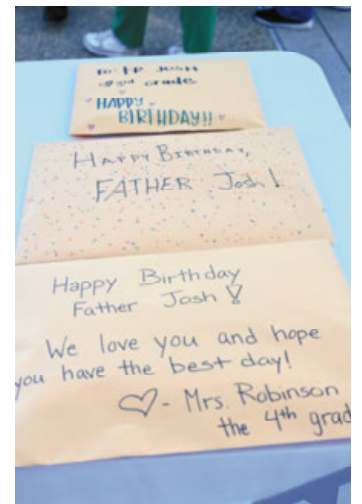 To: Fr. Josh
2nd grade
HAPPY
BIRTHDAY!!
HAPPY BIRTHDAY,
FATHER Josh!
Happy Birthday
Father Josh!
We love you and hope
you have the best day!
- Mrs. Robinson
the 4th grad